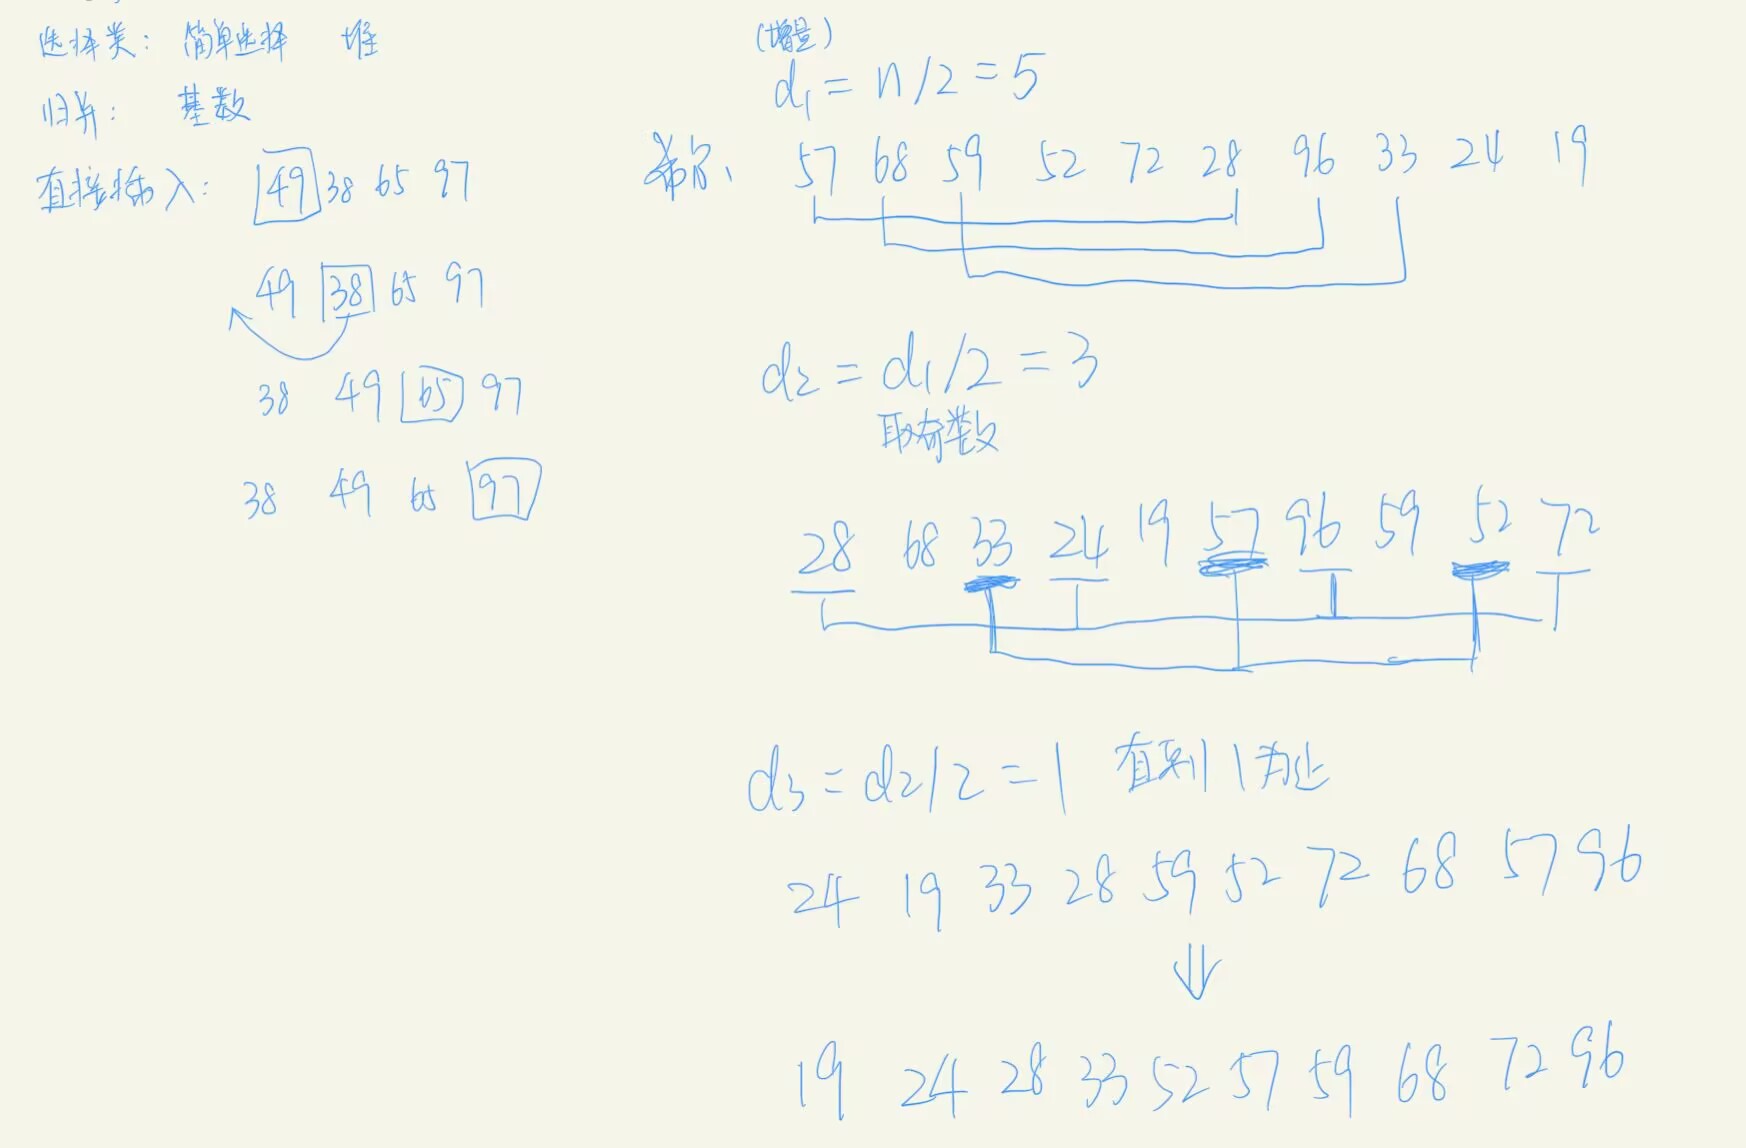 选择类: 简单选择 堆
归并: 基数
直接插入: 49 38 65 97
49 38 65 97
38 49 65 97
38 49 65 97
(增量)
d1 = n/2 = 5
希尔、 57 68 59 52 72 28 96 33 24 19
d2 = d1/2 = 3
取奇数
28 68 33 24 19 57 96 59 52 72
d3 = d2/2 = 1 直到1为止
24 19 33 28 59 52 72 68 57 96
⇓
19 24 28 33 52 57 59 68 72 96